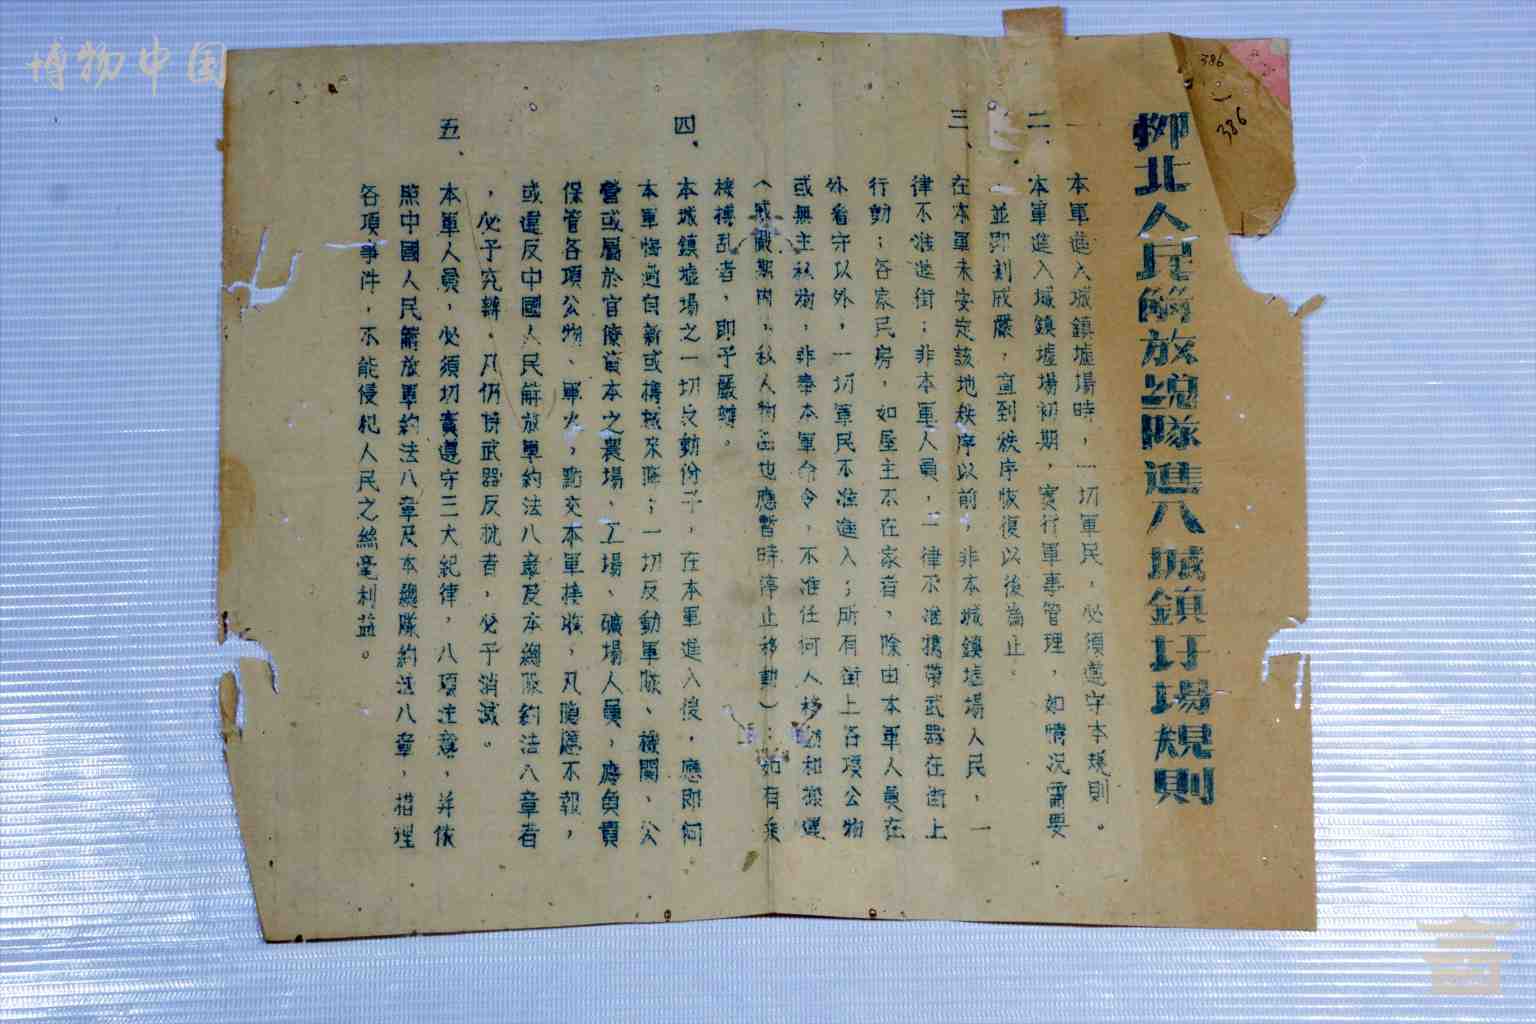 博物中国
386
386
柳北人民解放總隊進入城鎮圩場規則
一、
本軍進入城鎮墟場時，一切軍民，必須遵守本規則。
二、
本軍進入城鎮墟場初期，實行軍事管理，如情況需要
，並即刻戒嚴，直到秩序恢復以後為止。
三、
在本軍未安定該地秩序以前，非本城鎮墟場人民，一
律不准進街；非本軍人員，一律不准攜帶武器在街上
行動；各家民房，如屋主不在家者，除由本軍人員在
外看守以外，一切軍民不准進入；所有街上各項公物
或無主私物，非奉本軍命令，不准任何人移動和搬運
（戒嚴期內，私人物品也應暫時停止移動）；如有乘
機搗乱者，即予嚴辦。
四、
本城鎮墟場之一切反動份子，在本軍進入後，應即向
本軍悔過自新或攜械來降；一切反動軍隊、機關、公
營或屬於官僚資本之農場、工場、礦場人員，應負責
保管各項公物、軍火，點交本軍接收，凡隱匿不報，
或違反中國人民解放軍約法八章及本總隊約法八章者
，必予究辦。凡仍恃武器反抗者，必予消滅。
五、
本軍人員，必須切實遵守三大紀律，八項注意，并依
照中國人民解放軍約法八章及本總隊約法八章，措理
各項事件，不能侵犯人民之絲毫利益。